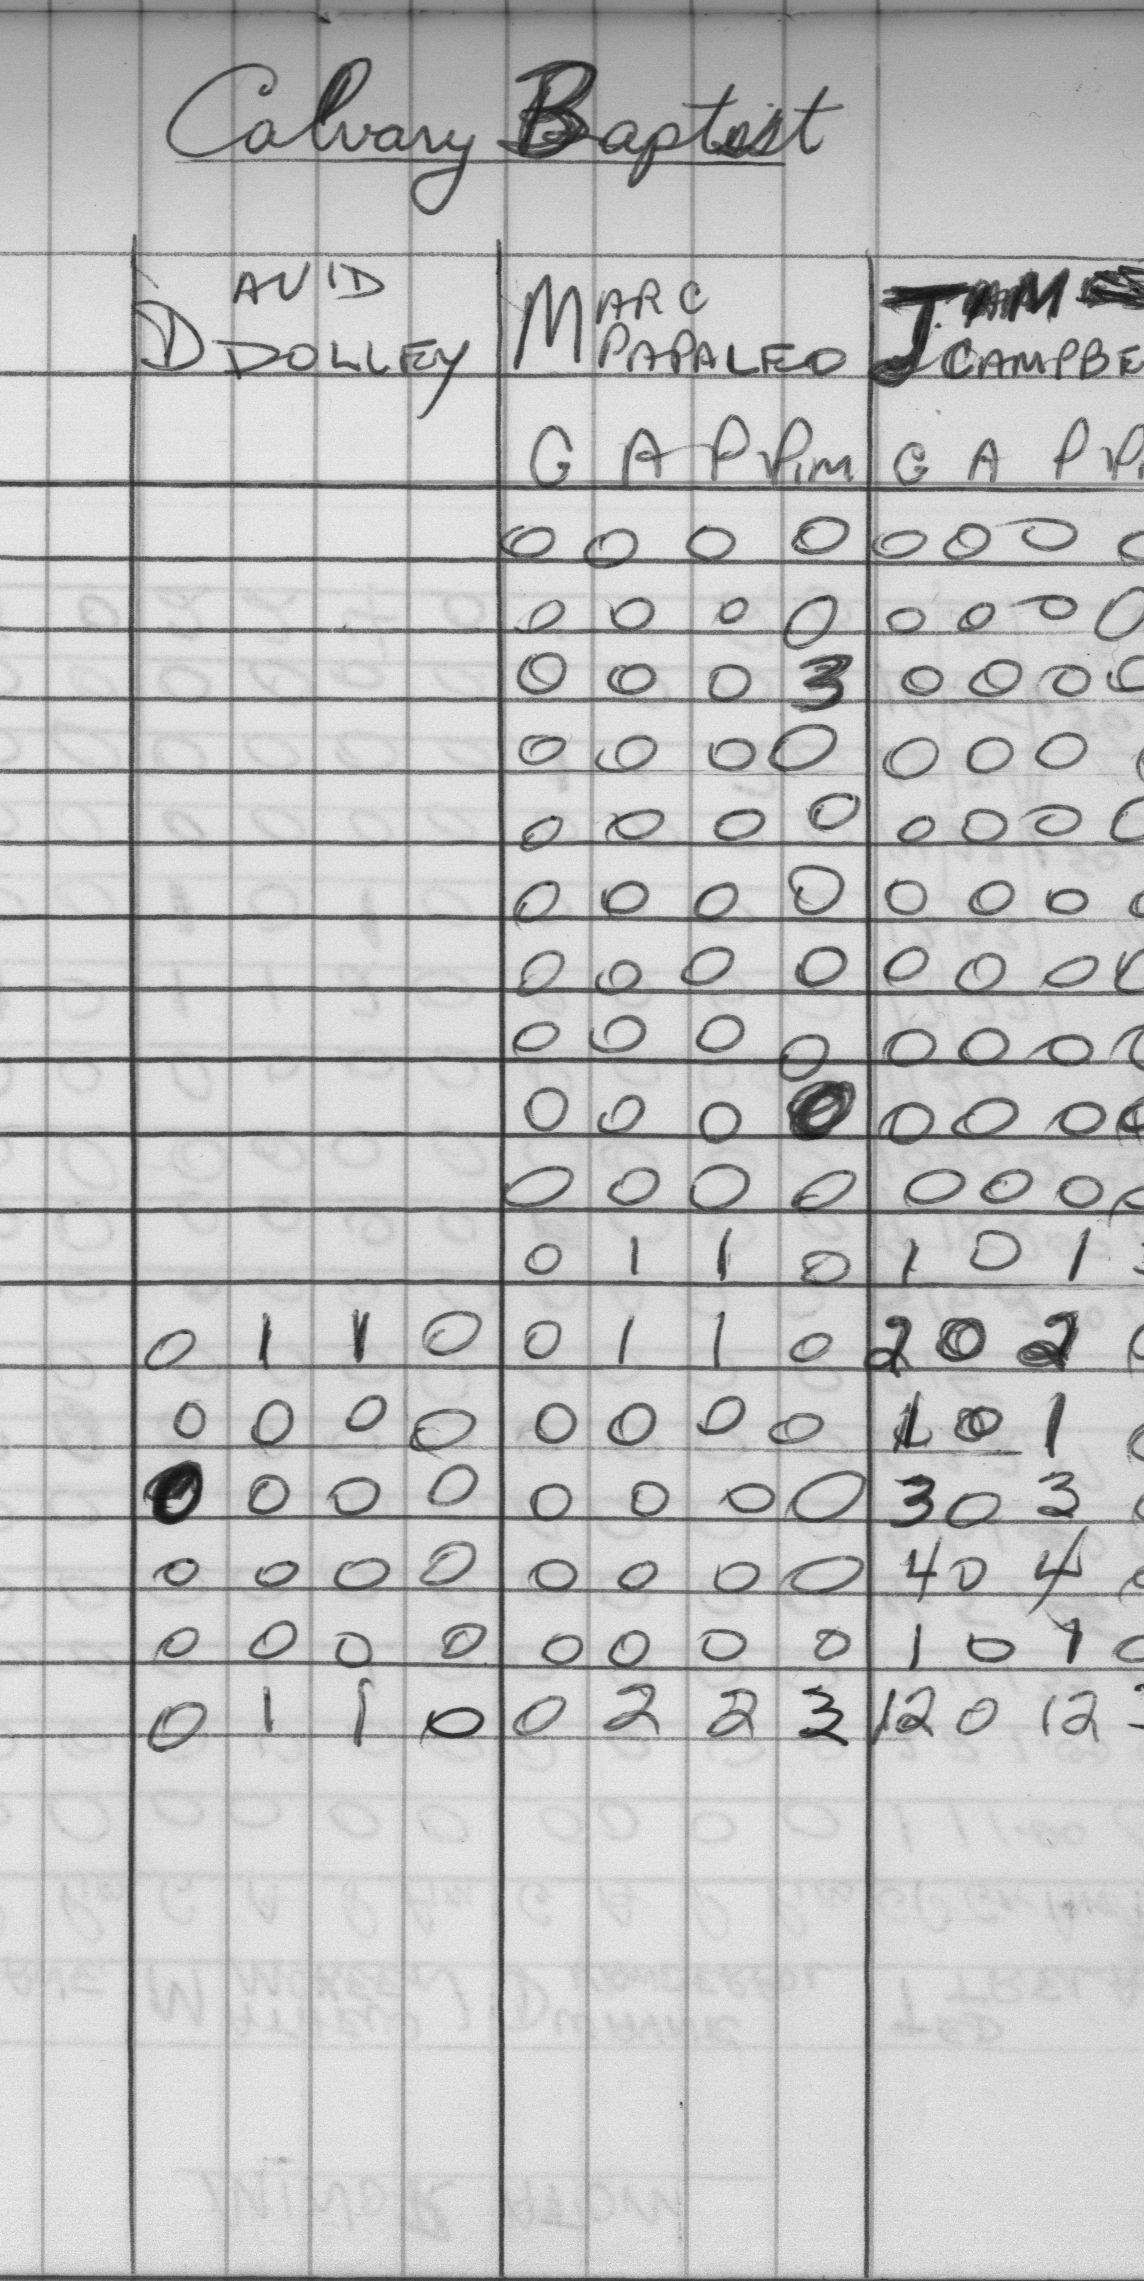 Calvary Baptist
DAVID DOLLEY MARC PAPALEO JAMES CAMPBE
G A P Pim G A P P
0 0 0 0 0 0 0 0
0 0 0 0 0 0 0 0
0 0 0 3 0 0 0 0
0 0 0 0 0 0 0
0 0 0 0 0 0 0 0
0 0 0 0 0 0 0 0
0 0 0 0 0 0 0 0
0 0 0 0 0 0 0 0
0 0 0 0 0 0 0 0
0 0 0 0 0 0 0 0
0 1 1 0 1 0 1
0 1 1 0 0 1 1 0 2 0 2 0
0 0 0 0 0 0 0 0 1 0 1 0
0 0 0 0 0 0 0 0 3 0 3 0
0 0 0 0 0 0 0 0 4 0 4 0
0 0 0 0 0 0 0 0 1 0 1 0
0 1 1 0 0 2 2 3 12 0 12